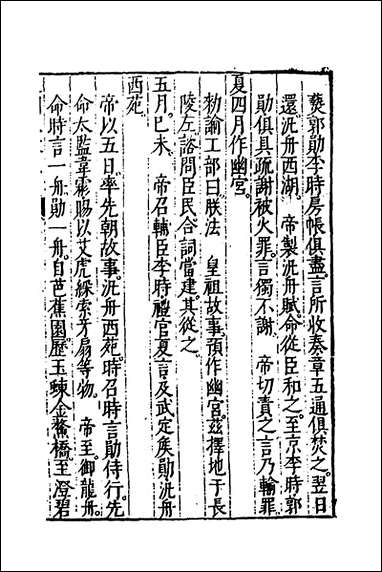 爇郭勛李時房帳俱盡言所收奏章五通俱焚之翌日
還汎舟西湖。帝製汎舟賦命從臣和之至京李時郭
勛俱具疏謝被火罪言獨不謝　帝切責之言乃輸罪
夏四月作幽宫。
勑諭工部曰朕法　皇祖故事預作幽宫茲擇地于長
陵左諮問臣民合詞當建其從之
五月己未　帝召輔臣李時禮官夏言及武定矦勛汎舟
西苑
帝以五日率先朝故事汎舟西苑時召時言勛侍行先
命太監韋霦賜以艾虎綵索牙扇等物　帝至御龍舟
命時言一舟勛一舟自芭蕉園歷玉蝀金鰲橋至澄碧